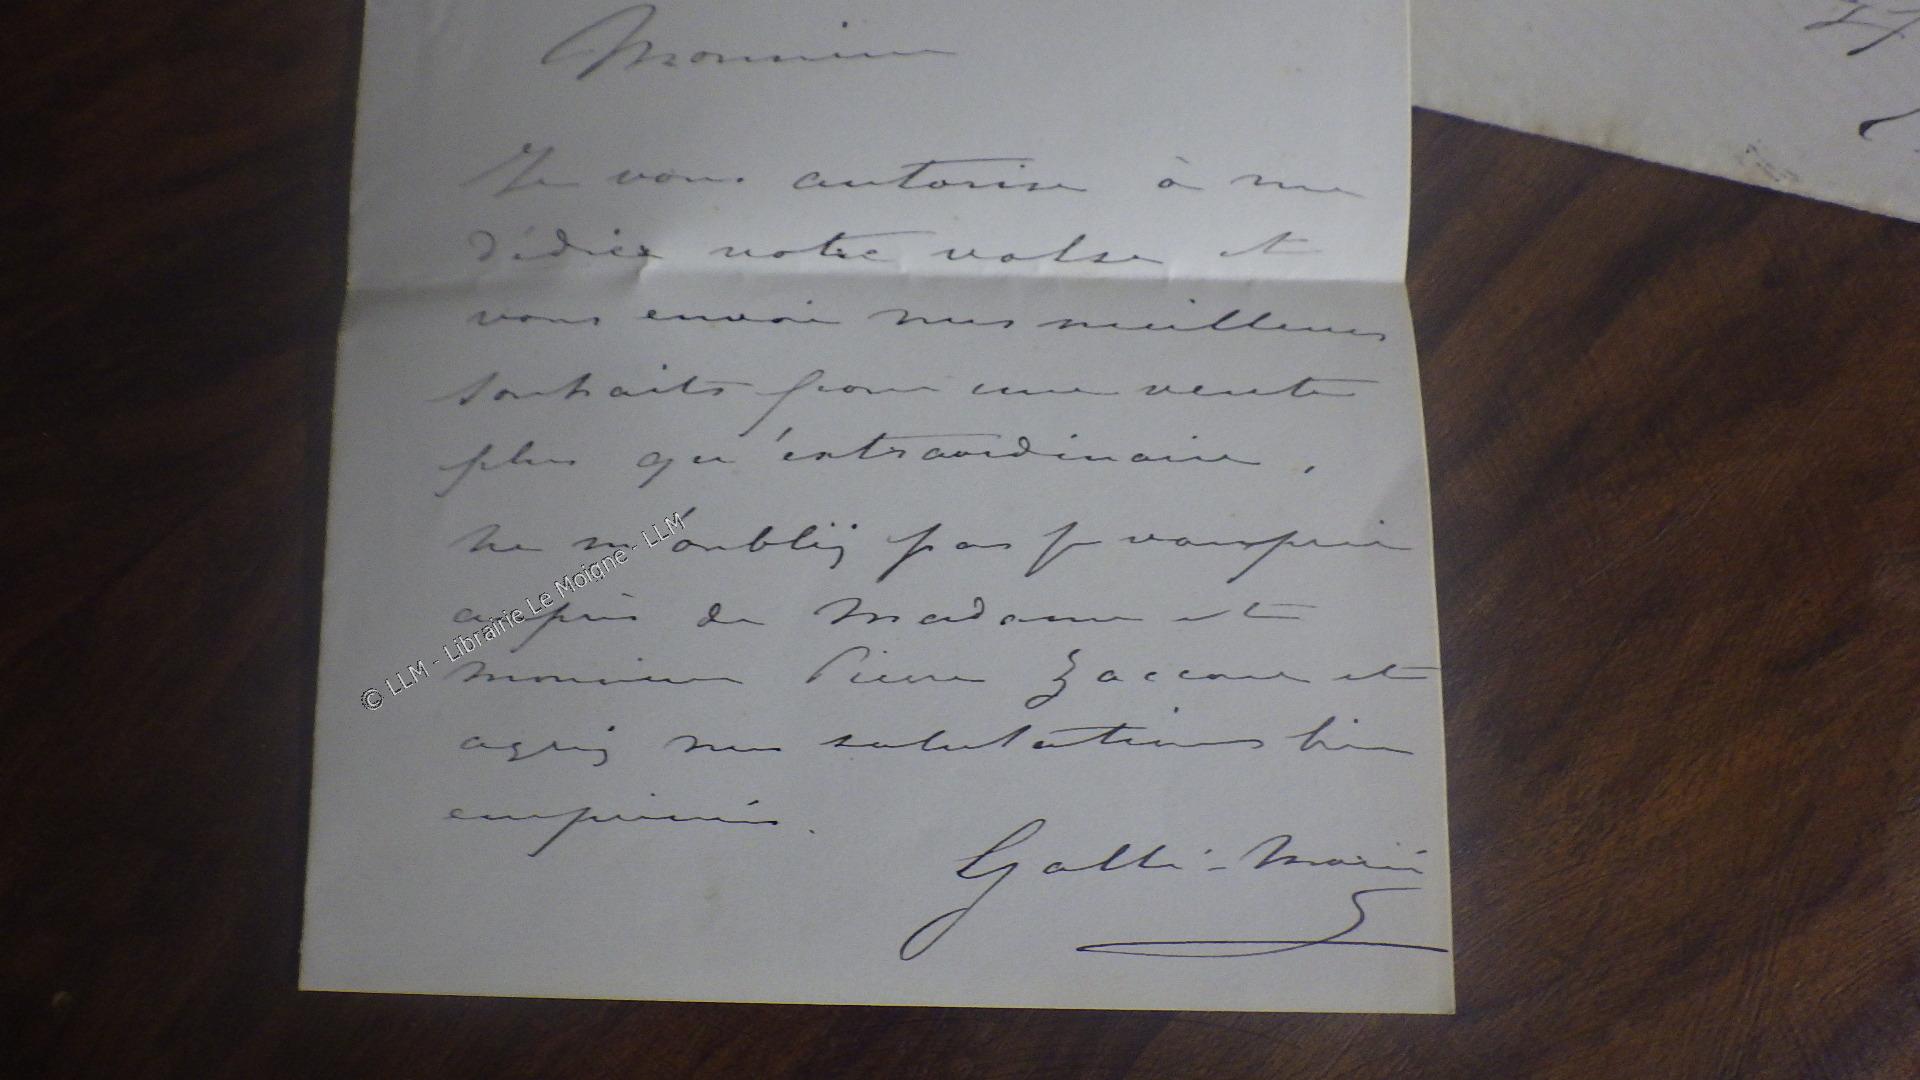 Monsieur
Je vous autorise à me
dédier votre valse et
vous envoie mes meilleurs
souhaits pour une vente
plus qu'extraordinaire.
Ne m'oubliez pas je vous prie
auprès de Madame et
monsieur Pierre Zaccone et
agréez mes salutations bien
empressées.
Galli-Marié
© LLM - Librairie Le Moigne - LLM